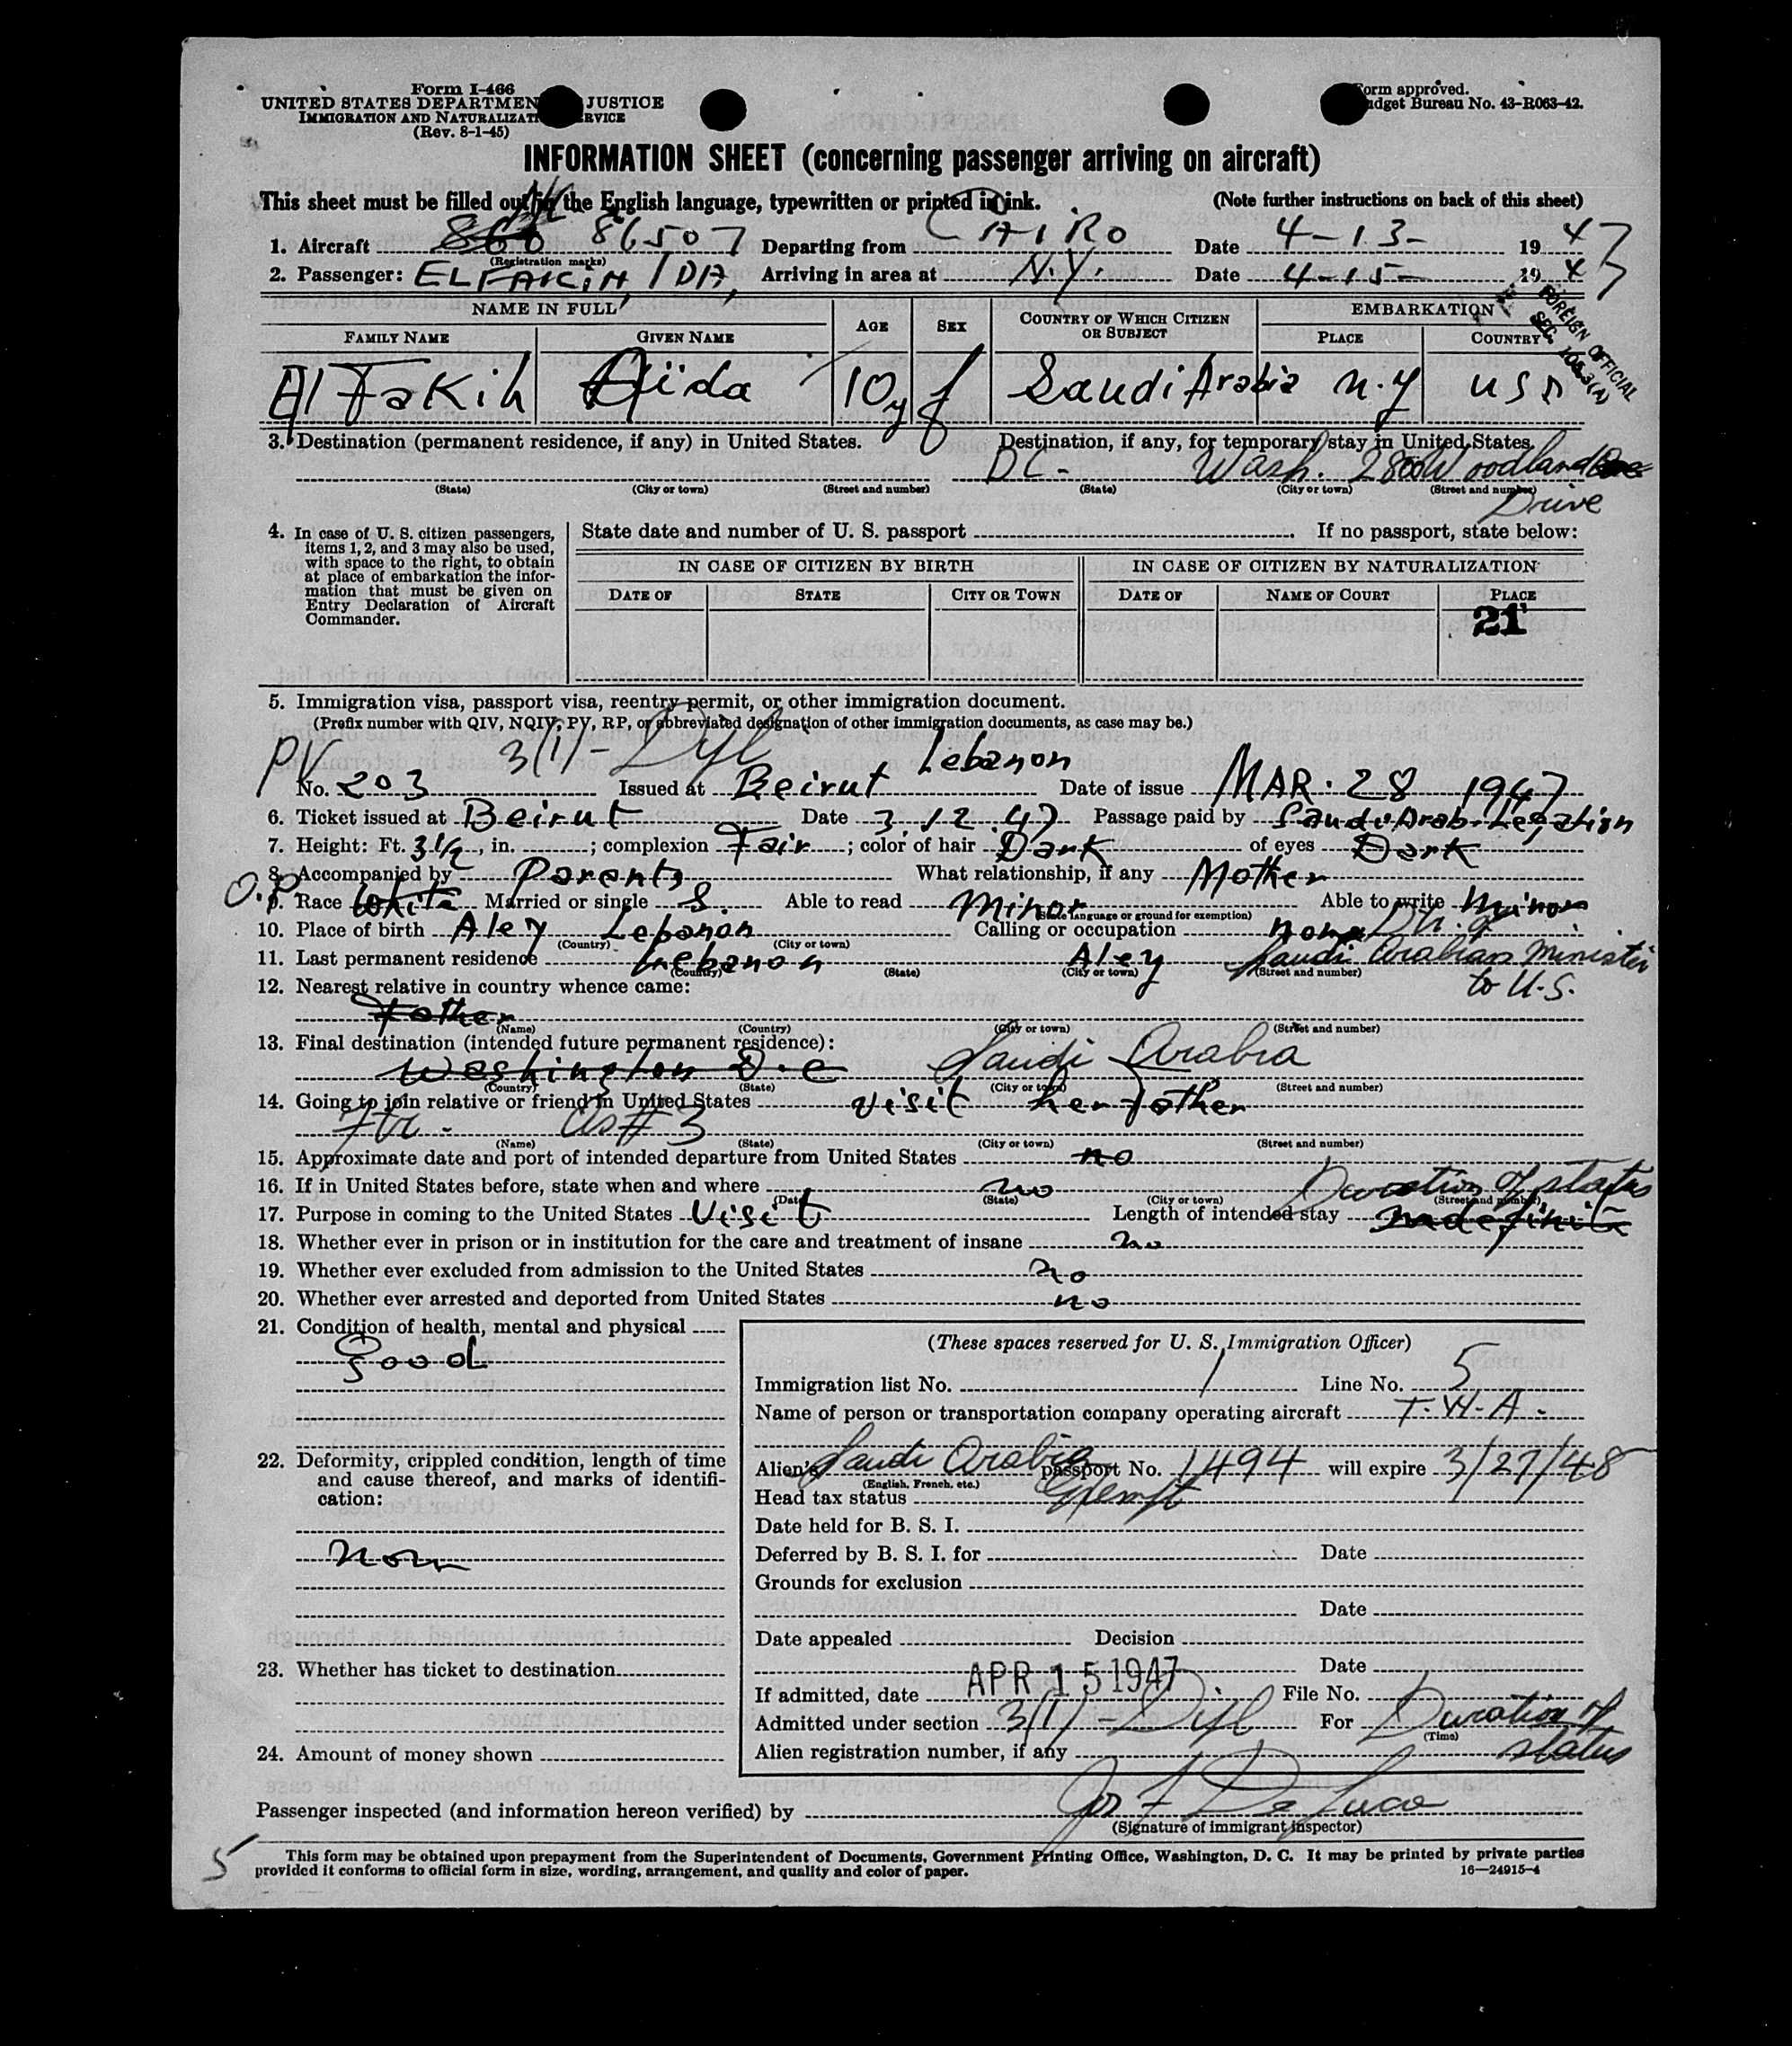 Form I-466
UNITED STATES DEPARTMEN JUSTICE
IMMIGRATION AND NATURALIZATI RVICE
(Rev. 8-1-45)
orm approved.
udget Bureau No. 43-R063-42.
INFORMATION SHEET (concerning passenger arriving on aircraft)
This sheet must be filled out in the English language, typewritten or printed in ink. (Note further instructions on back of this sheet)
1. Aircraft 86507 Departing from CAIRO Date 4-13- 1947
(Registration marks)
2. Passenger: ELFAKIH, IDA, Arriving in area at N.Y. Date 4-15- 194
NAME IN FULL AGE SEX COUNTRY OF WHICH CITIZEN OR SUBJECT EMBARKATION
FAMILY NAME GIVEN NAME PLACE COUNTRY
FOREIGN OFFICIAL
El Fakih Aïda 10y f Saudi Arabia n.y USA
3. Destination (permanent residence, if any) in United States. Destination, if any, for temporary stay in United States.
DC- Wash. 2800 Woodland
(State) (City or town) (Street and number) (State) (City or town) (Street and number)
Drive
4. In case of U. S. citizen passengers, items 1, 2, and 3 may also be used, with space to the right, to obtain at place of embarkation the information that must be given on Entry Declaration of Aircraft Commander.
State date and number of U. S. passport . If no passport, state below:
IN CASE OF CITIZEN BY BIRTH IN CASE OF CITIZEN BY NATURALIZATION
DATE OF STATE CITY OR TOWN DATE OF NAME OF COURT PLACE
21
5. Immigration visa, passport visa, reentry permit, or other immigration document.
(Prefix number with QIV, NQIV, PV, RP, or abbreviated designation of other immigration documents, as case may be.)
PV 3/1/- Lebanon
No. 203 Issued at Beirut Date of issue MAR. 28 1947
6. Ticket issued at Beirut Date 3.12.47 Passage paid by Saudi Arab-Legation
7. Height: Ft. 3 1/2, in. ; complexion Fair ; color of hair Dark of eyes Dark
8. Accompanied by Parents What relationship, if any Mother
O.P.
9. Race White Married or single S. Able to read Minor Able to write Minor
(State language or ground for exemption)
10. Place of birth Aley Lebanon Calling or occupation none
(Country) (City or town)
11. Last permanent residence Lebanon Aley Saudi Arabian Minister
(Country) (State) (City or town) (Street and number)
to U.S.
12. Nearest relative in country whence came:
Father
(Name) (Country) (City or town) (Street and number)
13. Final destination (intended future permanent residence):
Washington D.C Saudi Arabia
(Country) (State) (City or town) (Street and number)
14. Going to join relative or friend in United States visit her father
As #3
(Name) (State) (City or town) (Street and number)
15. Approximate date and port of intended departure from United States no
16. If in United States before, state when and where no Duration of status
(Date) (State) (City or town) (Street and number)
17. Purpose in coming to the United States Visit Length of intended stay Indefinite
18. Whether ever in prison or in institution for the care and treatment of insane no
19. Whether ever excluded from admission to the United States no
20. Whether ever arrested and deported from United States no
21. Condition of health, mental and physical
good
22. Deformity, crippled condition, length of time and cause thereof, and marks of identification:
non
23. Whether has ticket to destination
24. Amount of money shown
(These spaces reserved for U. S. Immigration Officer)
Immigration list No. 1 Line No. 5
Name of person or transportation company operating aircraft T.W.A.
Alien's Saudi Arabia passport No. 1494 will expire 3/27/48
(English, French, etc.)
Head tax status Exempt
Date held for B. S. I.
Deferred by B. S. I. for Date
Grounds for exclusion
Date
Date appealed Decision
Date
If admitted, date APR 15 1947 File No.
Admitted under section 3/1/- For Duration of
(Time)
status
Alien registration number, if any
Passenger inspected (and information hereon verified) by Jos F De Luca
(Signature of immigrant inspector)
5
This form may be obtained upon prepayment from the Superintendent of Documents, Government Printing Office, Washington, D. C. It may be printed by private parties
provided it conforms to official form in size, wording, arrangement, and quality and color of paper. 16—24915-4